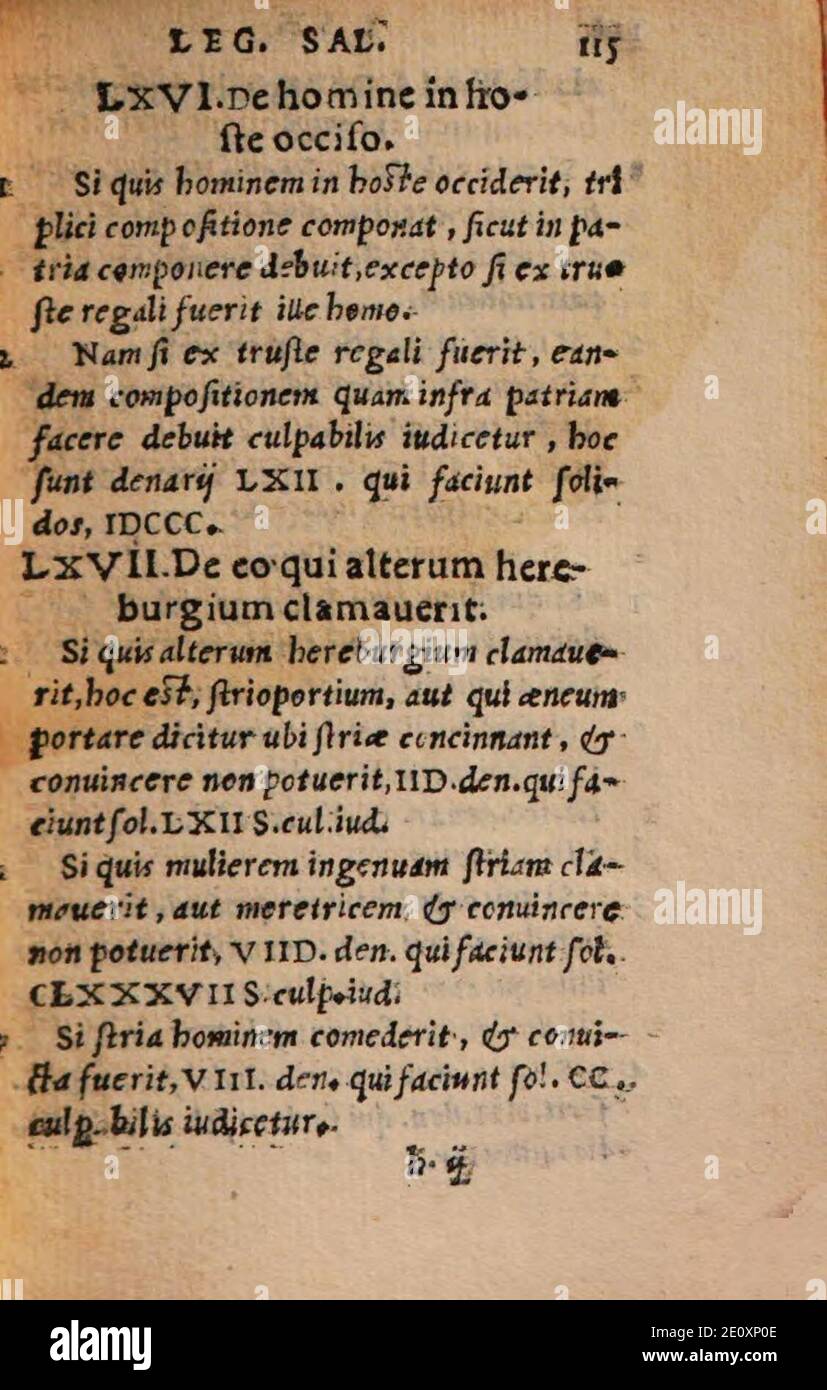 LEG. SAL. 115
LXVI. De homine in ho-
ste occiso.
1 Si quis hominem in hoste occiderit, tri
plici compositione componat, sicut in pa-
tria componere debuit, excepto si ex tru-
ste regali fuerit ille homo.
2 Nam si ex truste regali fuerit, ean-
dem compositionem quam infra patriam
facere debuit culpabilis iudicetur, hoc
sunt denarij LXII. qui faciunt soli-
dos, IDCCC.
LXVII. De eo qui alterum here-
burgium clamauerit.
Si quis alterum hereburgium clamaue-
rit, hoc est, strioportium, aut qui æneum
portare dicitur ubi striæ concinnant, &
conuincere non potuerit, IID. den. qui fa-
ciunt sol. LXII S. cul. iud.
Si quis mulierem ingenuam striam cla-
mauerit, aut meretricem, & conuincere
non potuerit, VIID. den. qui faciunt sol.
CLXXXVII S. culp. iud.
Si stria hominem comederit, & conui-
cta fuerit, VIII. den. qui faciunt sol. CC.
culpabilis iudicetur.
h. ij
alamy
Image ID: 2E0XP0E
www.alamy.com